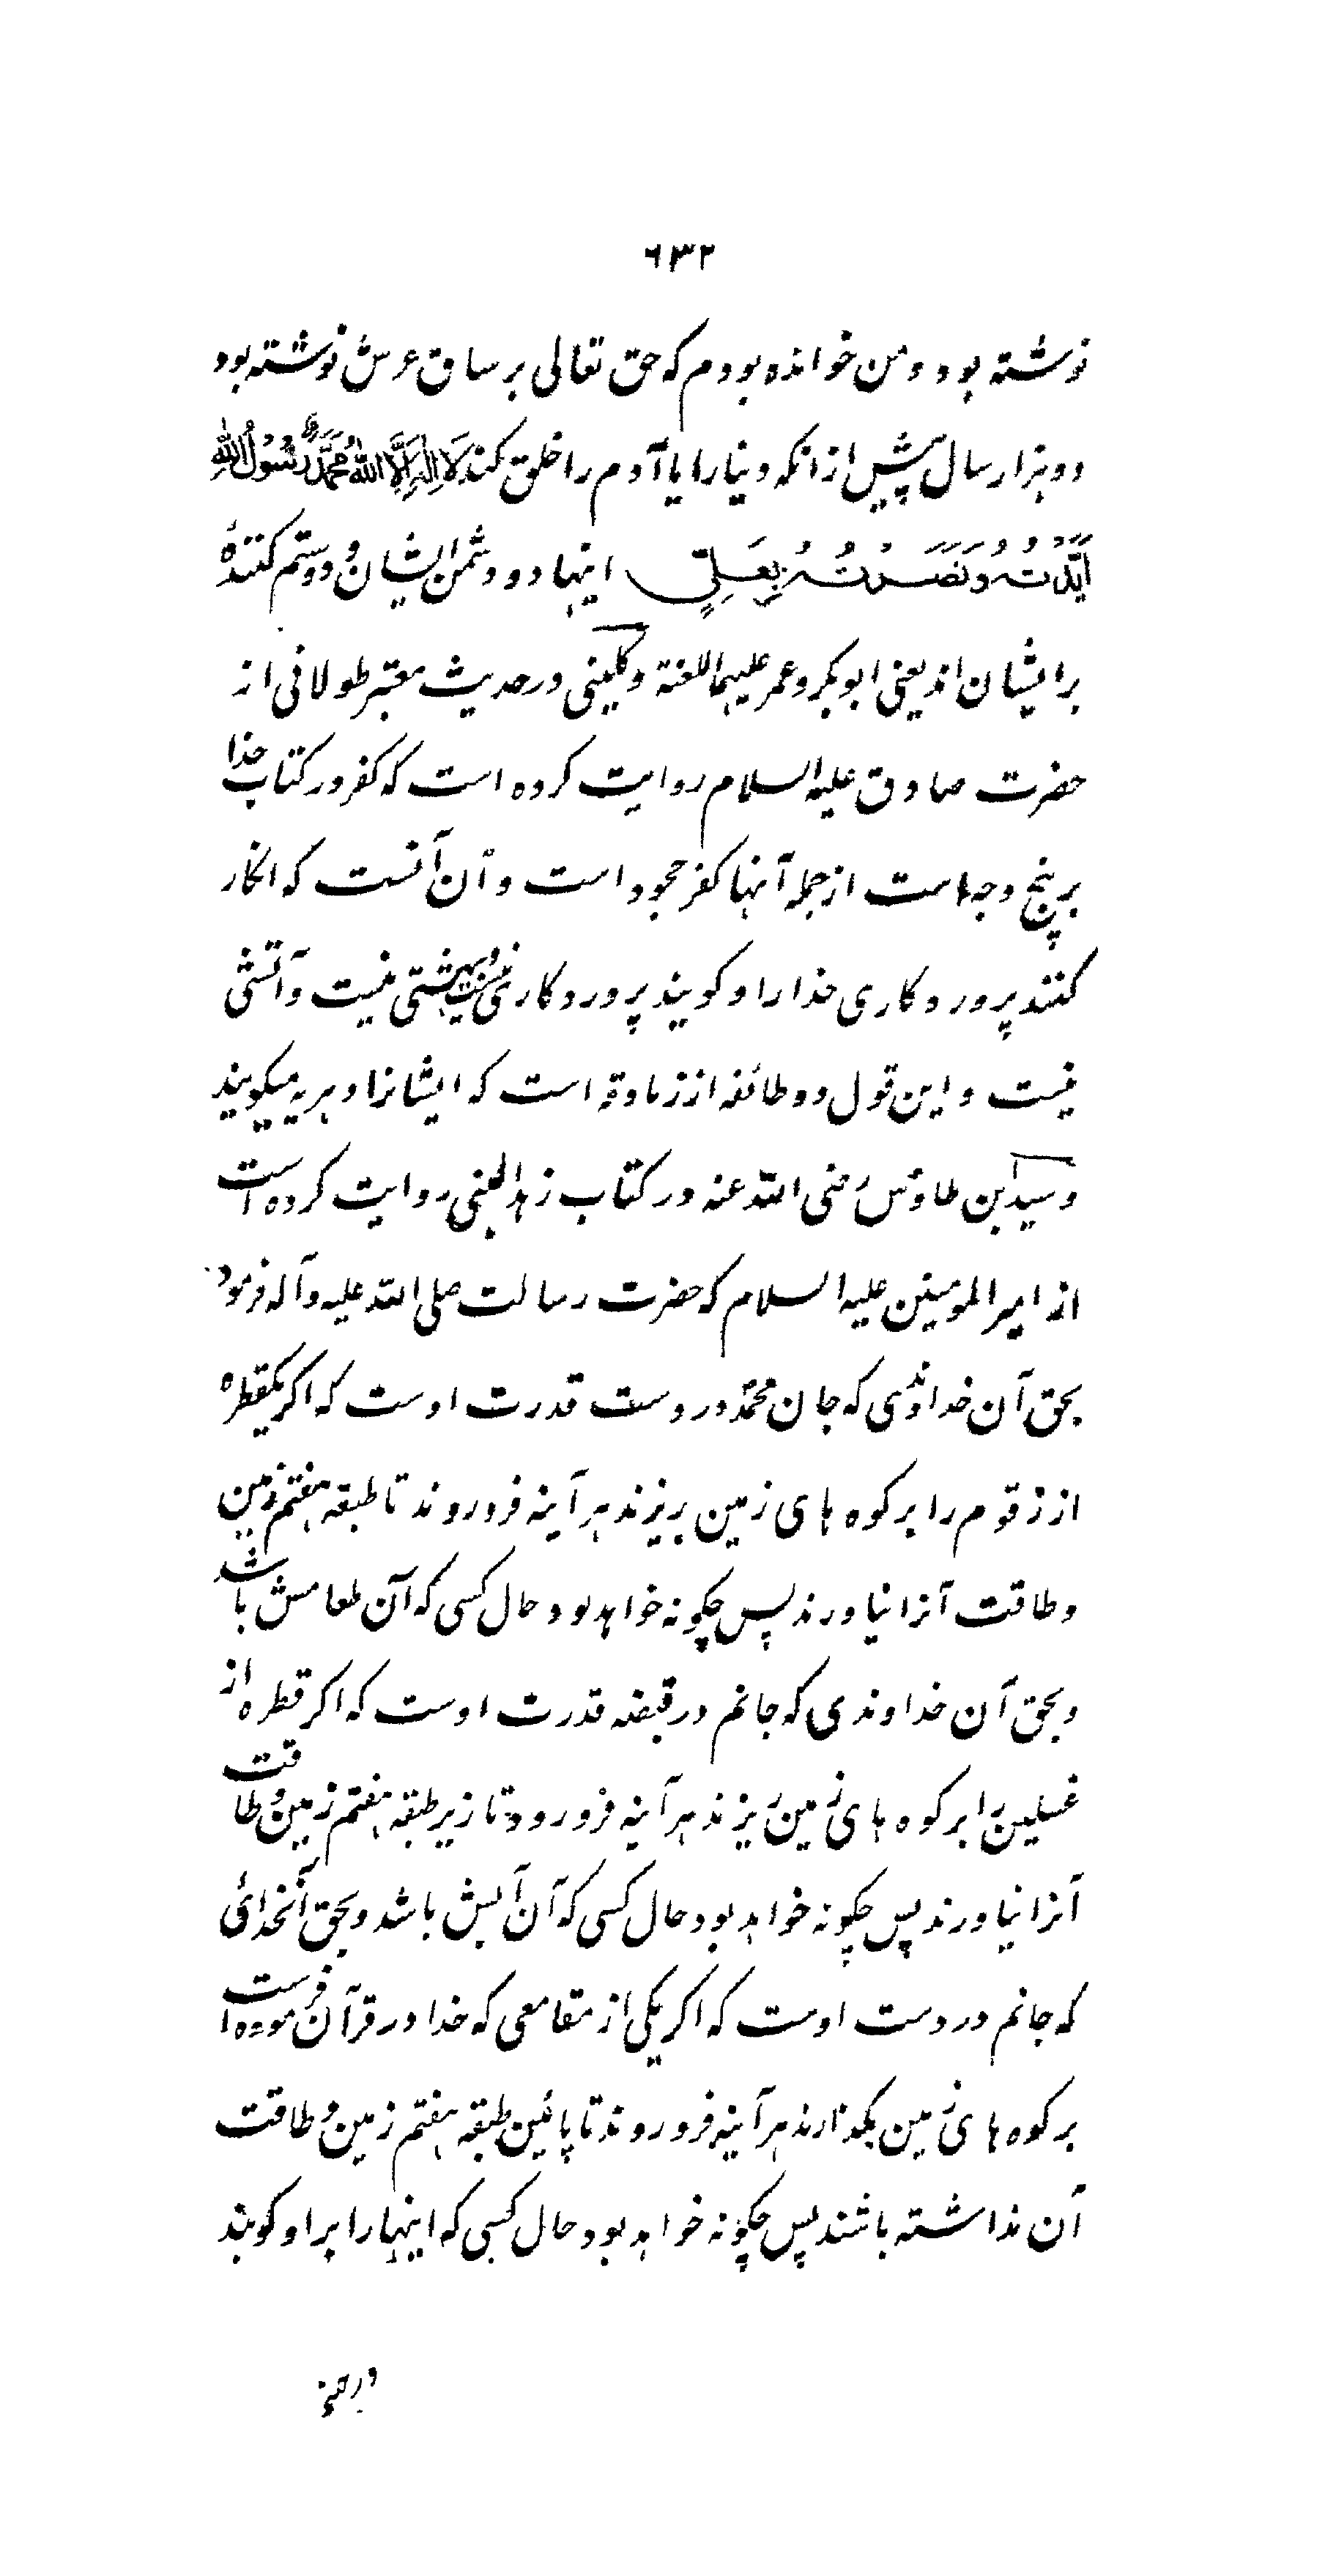 ٦٣٢
نوشته بود و من خوانده بودم که حق تعالی بر ساق عرش نوشته بود
دو هزار سال پیش از انکه دنیا را یا آدم را خلق کند لَا اِلٰهَ اِلَّا اللهُ مُحَمَّدٌ رَسُوْلُ اللهِ
اَیَّدْتُهُ وَنَصَرْتُهُ بِعَلِیٍّ اینها دو دشمن ایشان و دو ستم کننده
بر ایشان اند یعنی ابو بکر و عمر علیهما اللعنة و کلینی در حدیث معتبر طولانی از
حضرت صادق علیه السلام روایت کرده است که کفر در کتاب خدا
بر پنج وجه است از جمله آنها کفر جحود است و آن آنست که انکار
کنند پروردکاری خدا را و کویند پروردکاری نیست و بهشتی نیست و آتشی
نیست و این قول دو طائفه از زنادقه است که ایشانرا دهریه میکویند
و سید ابن طاوس رضی الله عنه در کتاب زهد النبی روایت کرده است
از امیر المومنین علیه السلام که حضرت رسالت صلی الله علیه و آله فرمود
بحق آن خداوندی که جان محمّد در دست قدرت اوست که اکر یکقطره
از زقوم را بر کوه های زمین ریزند هر آینه فرو روند تا طبقه هفتم زمین
و طاقت آنرا نیاورند پس چکونه خواهد بود حال کسی که آن طعامش باشد
و بحق آن خداوندی که جانم در قبضه قدرت اوست که اکر قطره از
غسلین را بر کوه های زمین ریزند هر آینه فرو رود تا زیر طبقه هفتم زمین و طاقت
آنرا نیاورند پس چکونه خواهد بود حال کسی که آن آبش باشد و بحق آنخدائی
که جانم در دست اوست که اکر یکی از مقامعی که خدا در قرآن فرموده است
بر کوه های زمین بکذارند هر آینه فرو روند تا پائین طبقه هفتم زمین و طاقت
آن نداشته باشند پس چکونه خواهد بود حال کسی که اینها را بر او کوبند
در